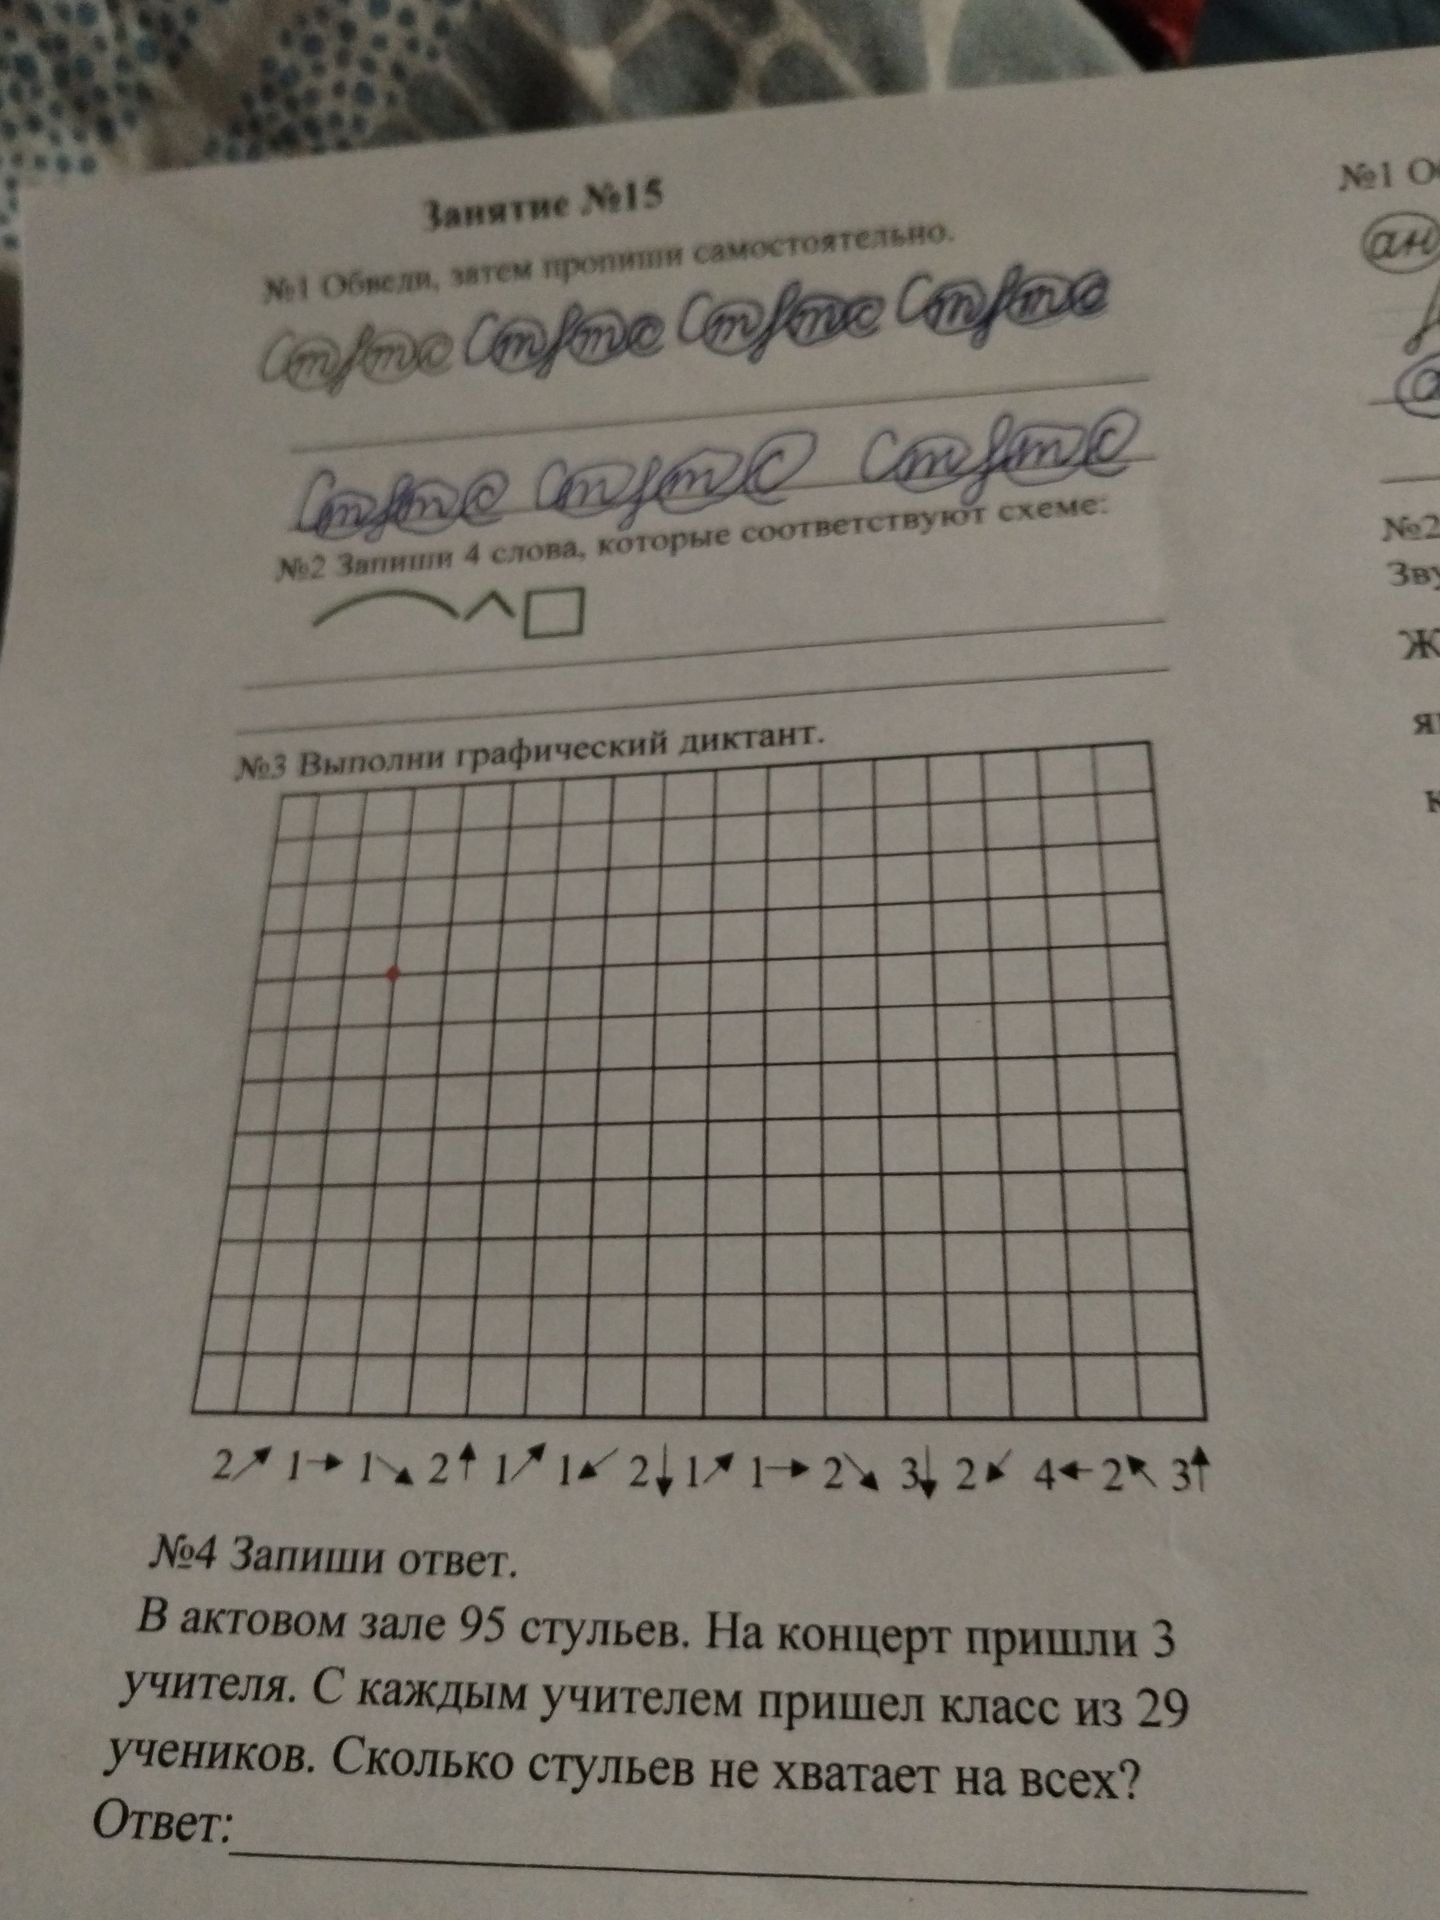 Занятие №15
№1 Обведи, затем пропиши самостоятельно.
№2 Запиши 4 слова, которые соответствуют схеме:
№3 Выполни графический диктант.
2↗ 1→ 1↘ 2↑ 1↗ 1↙ 2↓ 1↗ 1→ 2↘ 3↓ 2↙ 4← 2↖ 3↑
№4 Запиши ответ.
В актовом зале 95 стульев. На концерт пришли 3
учителя. С каждым учителем пришел класс из 29
учеников. Сколько стульев не хватает на всех?
Ответ:
№1
ан
№2
Ж